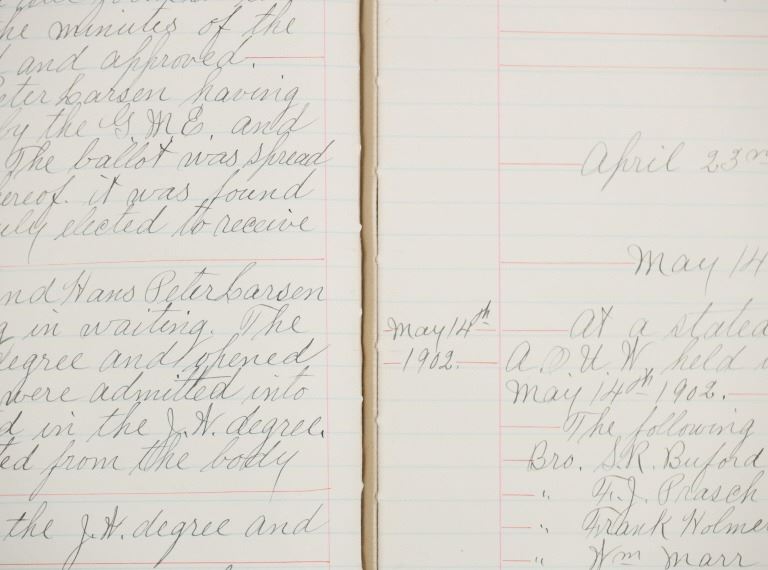 the minutes of the
and approved.
Peter Larsen having
by the G. M. E. and
The ballot was spread
hereof. it was found
uly elected to receive
and Hans Peter Larsen
g in waiting. The
degree and opened
were admitted into
d in the J. H. degree.
ted from the body
the J. H. degree and
April 23rd
May 14
May 14th
1902.
At a stated
A. O. U. W. held
May 14th 1902.
The following
Bro. S. R. Buford
" F. J. Prasch
" Frank Holme
" Wm Marr